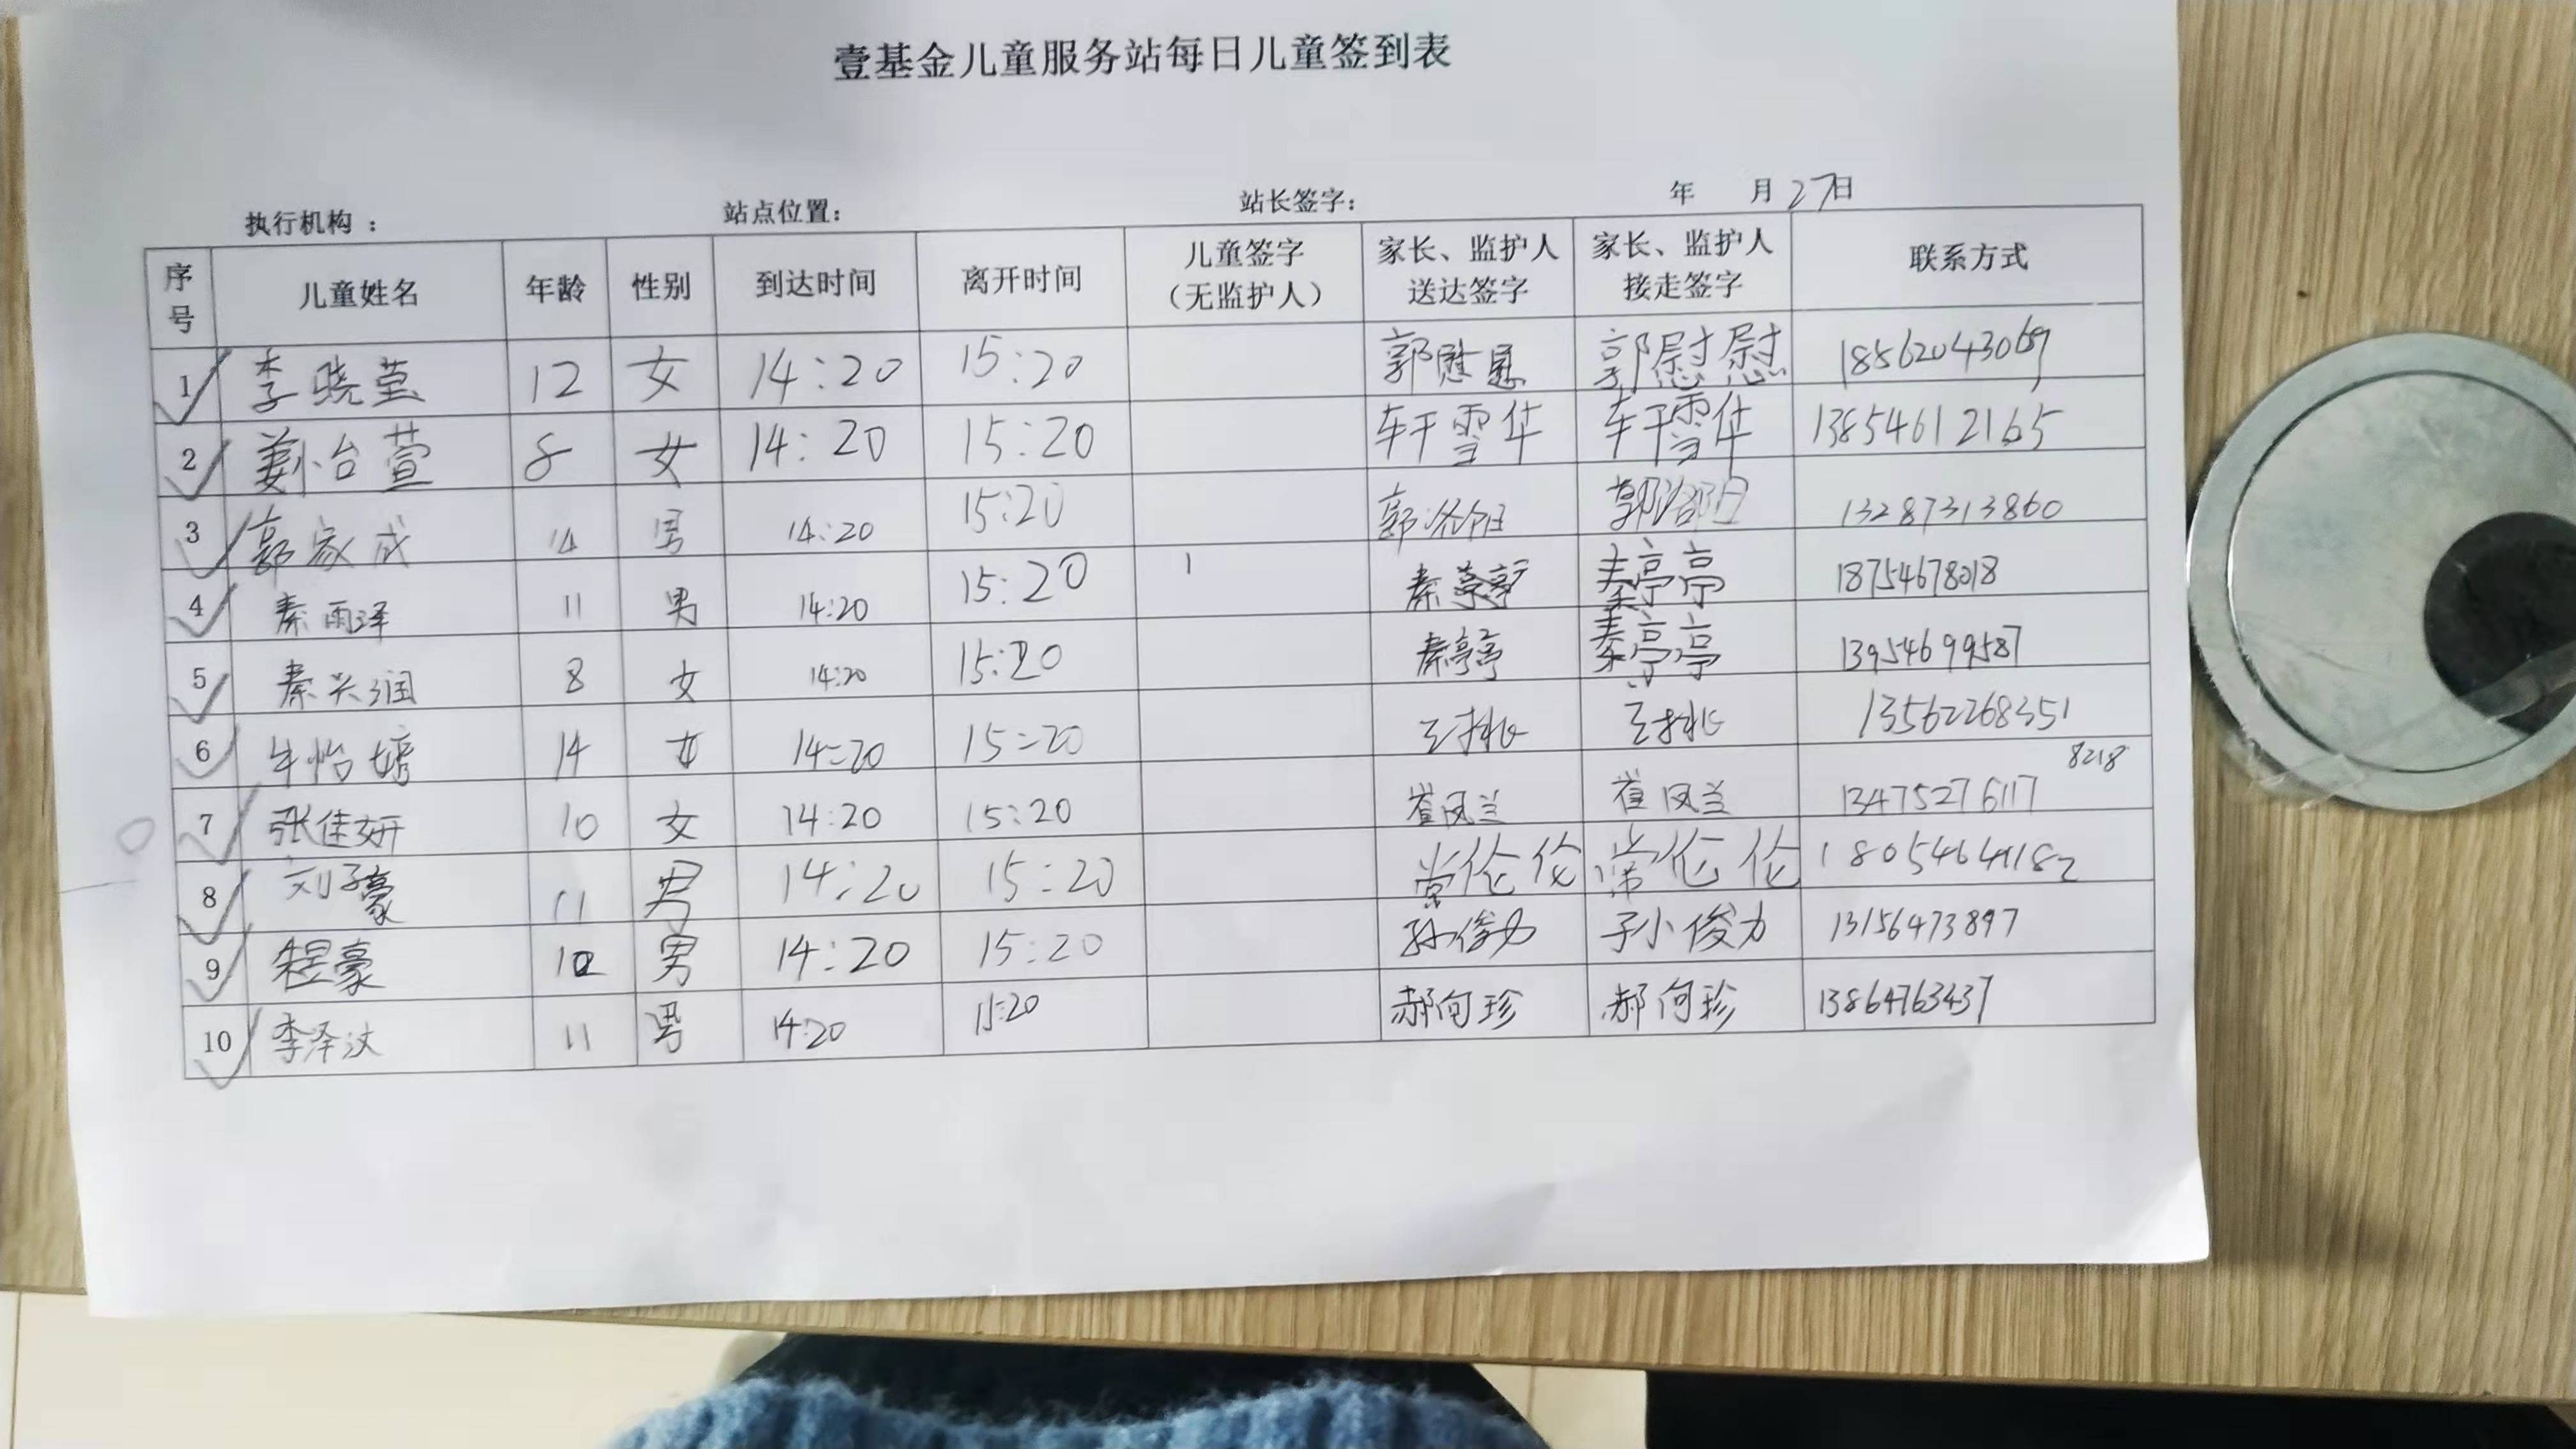 壹基金儿童服务站每日儿童签到表
执行机构： 站点位置： 站长签字： 年 月 27日
序号 儿童姓名 年龄 性别 到达时间 离开时间 儿童签字（无监护人） 家长、监护人送达签字 家长、监护人接走签字 联系方式
1 李晓莹 12 女 14:20 15:20 郭慰慰 郭慰慰
2 姜怡萱 8 女 14:20 15:20 车干雪华 车干雪华 13854612165
3 郭家成 14 男 14:20 15:20 13287313860
4 秦雨泽 11 男 14:20 15:20 秦亭亭 秦亭亭 18754678018
5 秦兴润 8 女 14:20 15:20 秦亭亭 秦亭亭 13954699587
6 牛怡婷 14 女 14=20 15=20 13562268351
8218
7 张佳妍 10 女 14:20 15:20 崔凤兰 崔凤兰 13475276117
8 刘子豪 11 男 14:20 15:20 常伦伦 常伦伦 18054641182
9 程豪 男 14:20 15:20 孙俊力 孙俊力 13156473897
10 李泽汶 11 男 14:20 15:20 郝向珍 郝向珍 13864763437